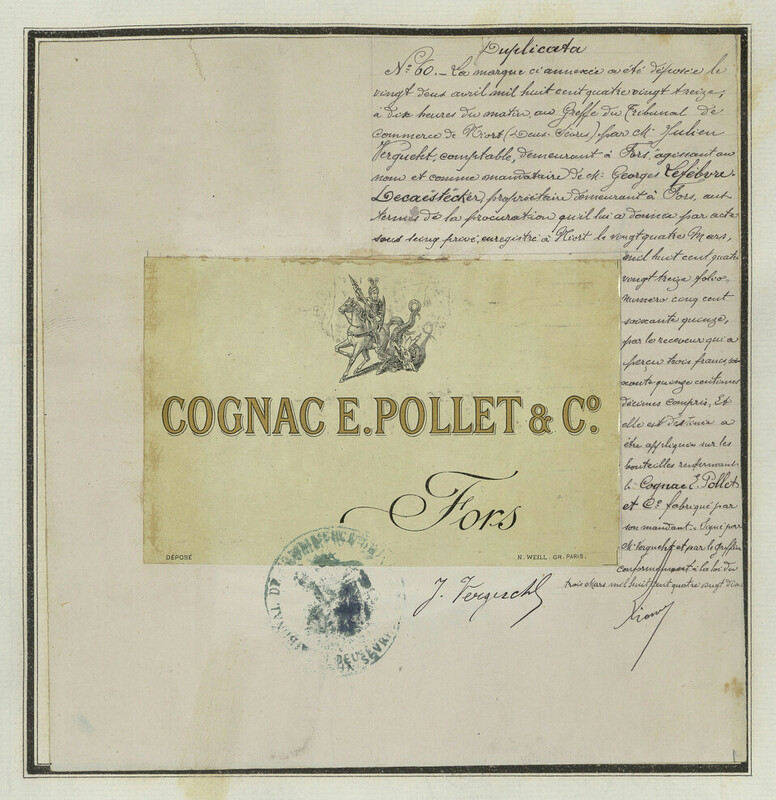 Duplicata
No. 60. - La marque ci annexée a été déposée le
vingt deux avril mil huit cent quatre vingt treize,
à dix heures du matin, au Greffe du Tribunal de
Commerce de Niort (Deux-Sèvres) par M. Julien
Vergucht, comptable, demeurant à Fors, agissant au
nom et comme mandataire de M. Georges Lefebvre-
Decaëstecker, propriétaire demeurant à Fors, aux
termes de la procuration qu'il lui a donnée par acte
sous seing privé, enregistré à Niort le vingt quatre Mars,
mil huit cent quatre
vingt treize folio,
numéro cinq cent
soixante quinze,
par le receveur qui a
perçu trois francs, soi-
xante quinze centimes
décimes compris. Et
elle est destinée à
être appliquée sur les
bouteilles renfermant
le Cognac E. Pollet
et Co. fabriqué par
son mandant. Signé par
M. Vergucht et par le greffier
conformément à la loi du
trois Mars mil huit cent quatre vingt dix
COGNAC E. POLLET & Co.
Fors
DÉPOSÉ
N. WEILL. GR. PARIS.
TRIBUNAL DE COMMERCE DE
DEUX SÈVRES